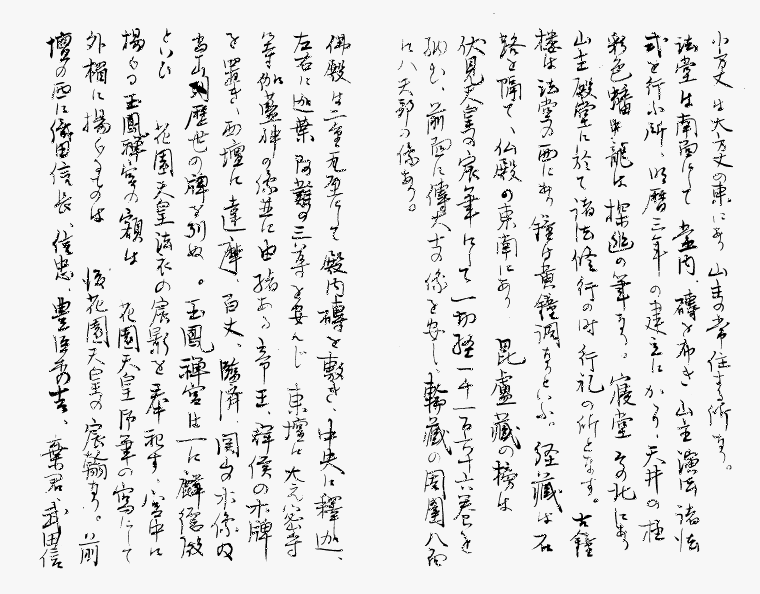 小方丈は大方丈の東にあり山主の常住する所なり。
法堂は南面にして堂内、磚を布き山主演法諸法
式を行ふ所、明暦三年の建立にかゝり天井の極
彩色蟠龍は探幽の筆なり。寝堂その北にあり
山主殿堂に於て諸法修行の時行礼の所とす。古鐘
楼は法堂の西にあり鐘は黄鐘調なりといふ。経蔵は石
路を隔て、仏殿の東南にあり 毘盧蔵の榜は
伏見天皇の宸筆にして一切経 を
納む、前面に傅大士の像を安し、輪蔵の周囲八面
に八天部の像あり。
佛殿は二重瓦葺にして殿内磚を敷き、中央に釋迦、
左右に迦葉阿難の三尊を安んじ東壇に大元密寺
等伽藍神の像並に由緒ある帝王、群侯の木牌
を置き、西壇に達摩、百丈、臨濟、関山木像及
当山歴世の碑を列ぬ。玉鳳禅宮は一に麟徳殿
といひ 花園天皇法衣の宸影を奉祀す、宮中に
揚ぐる玉鳳禅宮の額は 花園天皇御筆の寫にして
外楣に揚ぐるものは 後花園天皇の宸翰なり。前
壇の西に織田信長、信忠、豊臣秀吉、棄君、武田信